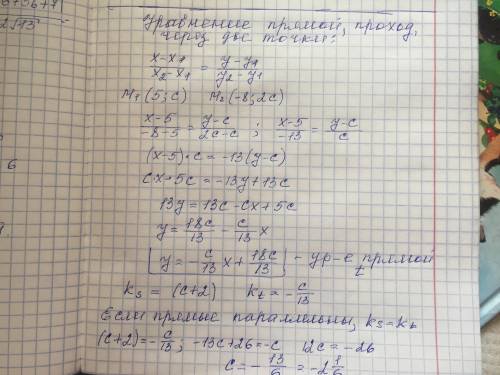 Уравнение прямой, проход.
через две точки:
x-x₁/x₂-x₁ = y-y₁/y₂-y₁
M₁(5; c) M₂(-8; 2c)
x-5/-8-5 = y-c/2c-c ; x-5/-13 = y-c/c
(x-5)·c = -13(y-c)
cx-5c = -13y+13c
13y = 13c-cx+5c
y = 18c/13 - c/13 x
[y = -c/13 x + 18c/13] - ур-е прямой t
k_s = (c+2) k_t = -c/13
Если прямые параллельны, k_s = k_t
(c+2) = -c/13; -13c+26 = -c 12c = -26
c = -13/6 = -2 1/6
2√13
6